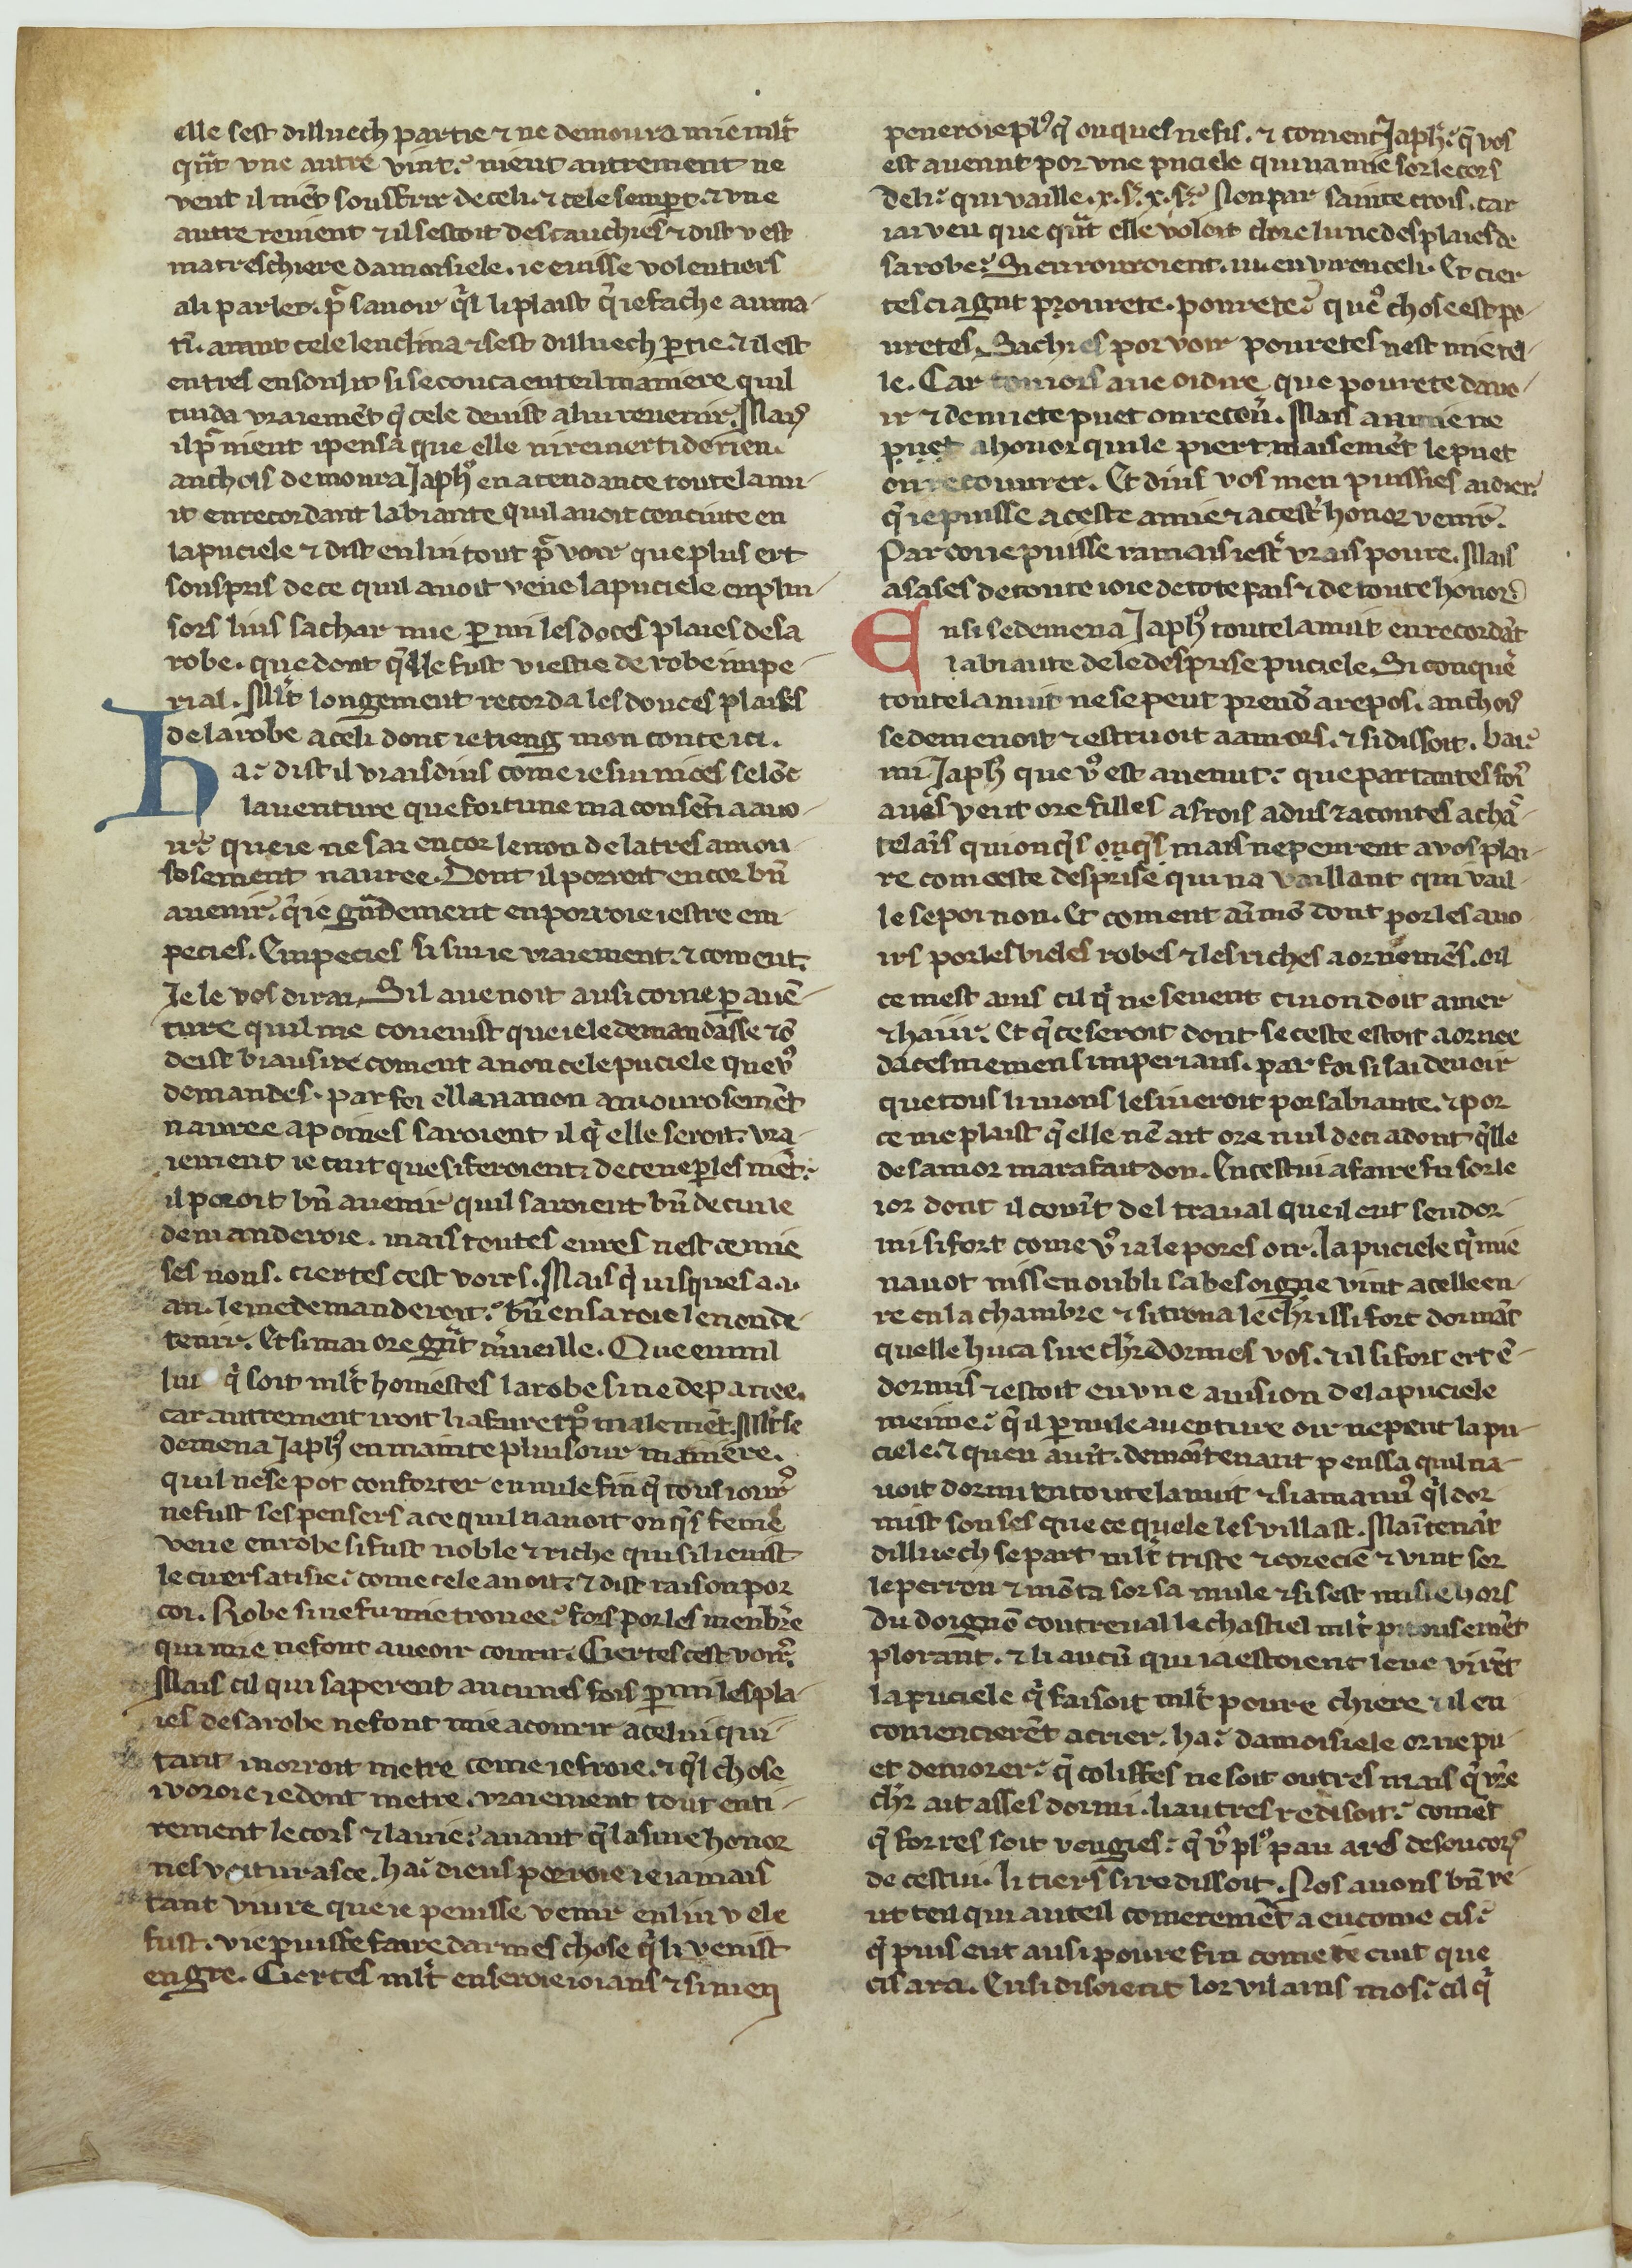 elle sest dilluech partie ⁊ ne demoura mie mlt̃
qũt vne autre vint. nient autrement ne
veut il niẽt souffrir de celi. ⁊ cele senꝑt. ⁊ vne
autre reuient ⁊ il sestoit descauchies ⁊ dist v est
ma treschiere damoisiele. ie euisse volentiers
a li parler. pͣ sauoir q̃l li plaist q̃ ie fache auma-
tĩ. atant cele lenclina ⁊ sest dilluech ꝑtie. ⁊ il est
entres en son lit si se couca en teil maniere quil
cuida vraiemẽt q̃ cele deuist a lui reuenir. Mais
il pͣ nient i pensa que elle ni reuierti de rien.
anchois demoura Japh⁹ en atendance toute la nu-
it en recordant la biaute quil auoit conciute en
la puciele ⁊ dist en lui tout pͣ voir que plus ert
souspris de ce quil auoit veue la puciele en plui-
sors lius sa char nue ꝑ mi les doces plaies de sa
robe. que dont q̃lle fust viestie de robe impe-
rial. Mlt̃ longement recorda les douces plaises
de la robe a celi dont ie tieng mon conte ici.
Ha. dist il vrais dius come ie sui nices selõc
lauenture que fortune ma consẽti a auo-
ir. que ie ne sai encor le non de la tres amou-
sosement nauree. Dont il porroit encor bñ
auenir. q̃ ie gͣndement en porroie iestre em-
pecies. Empecies si sui ie vraiement. ⁊ coment.
Je le vos dirai. Sil auenoit ausi come ꝑ auẽ-
ture quil me couenist que ie le demandasse ⁊ õ
deist biau sire coment a non cele puciele que v⁹
demandes. par foi elle a a non amourosemẽt
nauree a poines saroient il q̃ elle seroit. vra-
iement ie cuit que si feroient. de cene ꝑles mẽt.
il poroit bñ auenir quil saroient bñ de cui ie
demanderoie. mais toutes eures nest ce mie
ses nons. ciertes cest voirs. Mais q̃ iusques a .i.
an. le me demanderoit. bñ en saroie le non de-
tenir. Et si mai ore gͣnt m̃ueille. Que en nul
liu q̃ soit mlt̃ homestes la robe si ne depariee.
car autrement iroit li afaire tp̃ malemẽt. Mlt̃ se
demena Japh⁹ en mainte pluisour maniere.
quil ne se pot conforter en nule fin q̃ tous iours
ne fust ses pensers a ce quil nauoit onq̃s feme
veue en robe si fust noble ⁊ riche qui si li euist
le cuer satisfie. come cele auoit. ⁊ dist raison por
coi. Robe si ne fu mie trouee. fors por les menbr̃e
qui mie ne font a veoir courir. Ciertes cest voirs.
Mais cil qui saperent aucunes fois ꝑ mi les pla-
ies de sa robe ne font mie a courir a celui qui
tant i uorroit metre come ie feroie. ⁊ q̃l chose
i voroie ie dont metre. vraiement tout enti-
rement le cors ⁊ la uie. auant q̃ la siue honor
nes voiturasce. hai dieus porroie ie iamais
tant viure que ie peuisse venir en liu v ele
fust. v ie puisse faire darmes chose q̃ li venist
en gre. Ciertes mlt̃ en seroie ioians ⁊ si men
peneroie pl⁹ q̃ onques ne fis. ⁊ coment Japh⁹. q̃ vos
est auenut por vne puciele qui na mie sor le cors
de li. qui vaille .x. s. x. s. Non par sainte crois. car
iai veu que qͣnt elle voloit clore lune des plaies de
sa robe. Si en rouroient .iii. enuiron celi. Et cier
tes ci a gͣnt pouрete. pourete. que chose est po-
uretes. Sachies por voir pouretes nest mie tel-
le. Car toutiors ai ie oidire que pourete dauo-
ir ⁊ demiete puet on recou. Mais a mie ne
puet a honor qui le piert. maisemẽt le puet
on recouurer. Et dius vos men puissies aidier.
q̃ ie puisse a ceste amie ⁊ a ceste honor venir.
Par coi ie puisse iamais iestr̃ vrais poure. Mais
asases de toute ioie de tote pais ⁊ de toute honor.
Ensi se demena Japh⁹ toute la nuit en recordãt
la biaute de le desprise puciele. Si conques
toute la nuit ne se peut prend̃ a repos. anchois
se demenoit ⁊ estriuoit a amors. ⁊ si dissoit. hai.
mi Japh⁹ que v⁹ est auenut. que par tantes fois
aues veut ore filles as rois a dus ⁊ a contes a chã-
telains qui onq̃s onq̃s mais ne peurent a vos plai-
re com ceste desprise qui na vaillant qui vail-
le se poi non. Et coment aimõ dont por les auo-
irs por les bieles robes ⁊ les riches aornemẽs. oil
ce mest auis cil q̃ ne seuent cui on doit amer
⁊ hair. Et q̃ ce seroit dont se ceste estoit aornee
dacesmemens imperiaus. par foi si lai de voir
que tous li mons lesiueroit por sa biaute. ⁊ por
ce me plaist q̃ elle nẽ ait ore nul deci adont q̃lle
de samor mara fait don. En cestui afaire fu sor le
ior dont il couĩt del traual que il eut sendor-
mi si fort come v⁹ ia le pores oir. la puciele q̃ mie
nauot miss en oubli sa besoigne vint a celle eu-
re en la chambre ⁊ si troua le chr̃ issi fort dormãt
quelle huca sire chr̃ dormes vos. ⁊ il si fort ert ẽ-
dormis ⁊ estoit en vne auision de la puciele
meime. q̃ il ꝑ nule auenture oir ne peut la pu-
ciele. ⁊ quen auĩt. de mõtenant penssa quil na-
uoit dormi en toute la nuit ⁊ si ama mi⁹ q̃l dor-
mist son ses que ce quele les villast. Maitenãt
dilluech se part mlt̃ triste ⁊ corecie ⁊ vint sor
le perron ⁊ mõta sor sa mule ⁊ si sest misse hors
du doignõ contreual le chastiel mlt̃ pitousemẽt
plorant. ⁊ li aucũ qui ia estoient leue virẽt
la puciele q̃ faisoit mlt̃ poure chiere ⁊ il en
comencierẽt a crier. hai. damoisiele or ne pu-
et demorer. q̃ colisses ne soit outres mais q̃ vr̃e
chr̃ ait asses dormi. li autres redisoit. comẽt
q̃ forres soit vengies. q̃ v⁹ pl⁹ pau ares de soucors
de cestui. li tiers si redissoit. Nos auons bñ ve-
ut teil qui auteil comeremẽt a eu come cis.
q̃ puis eut ausi poure fin come ie cuit que
cis ara. Ensi disoient lor vilains mos. cil q̃